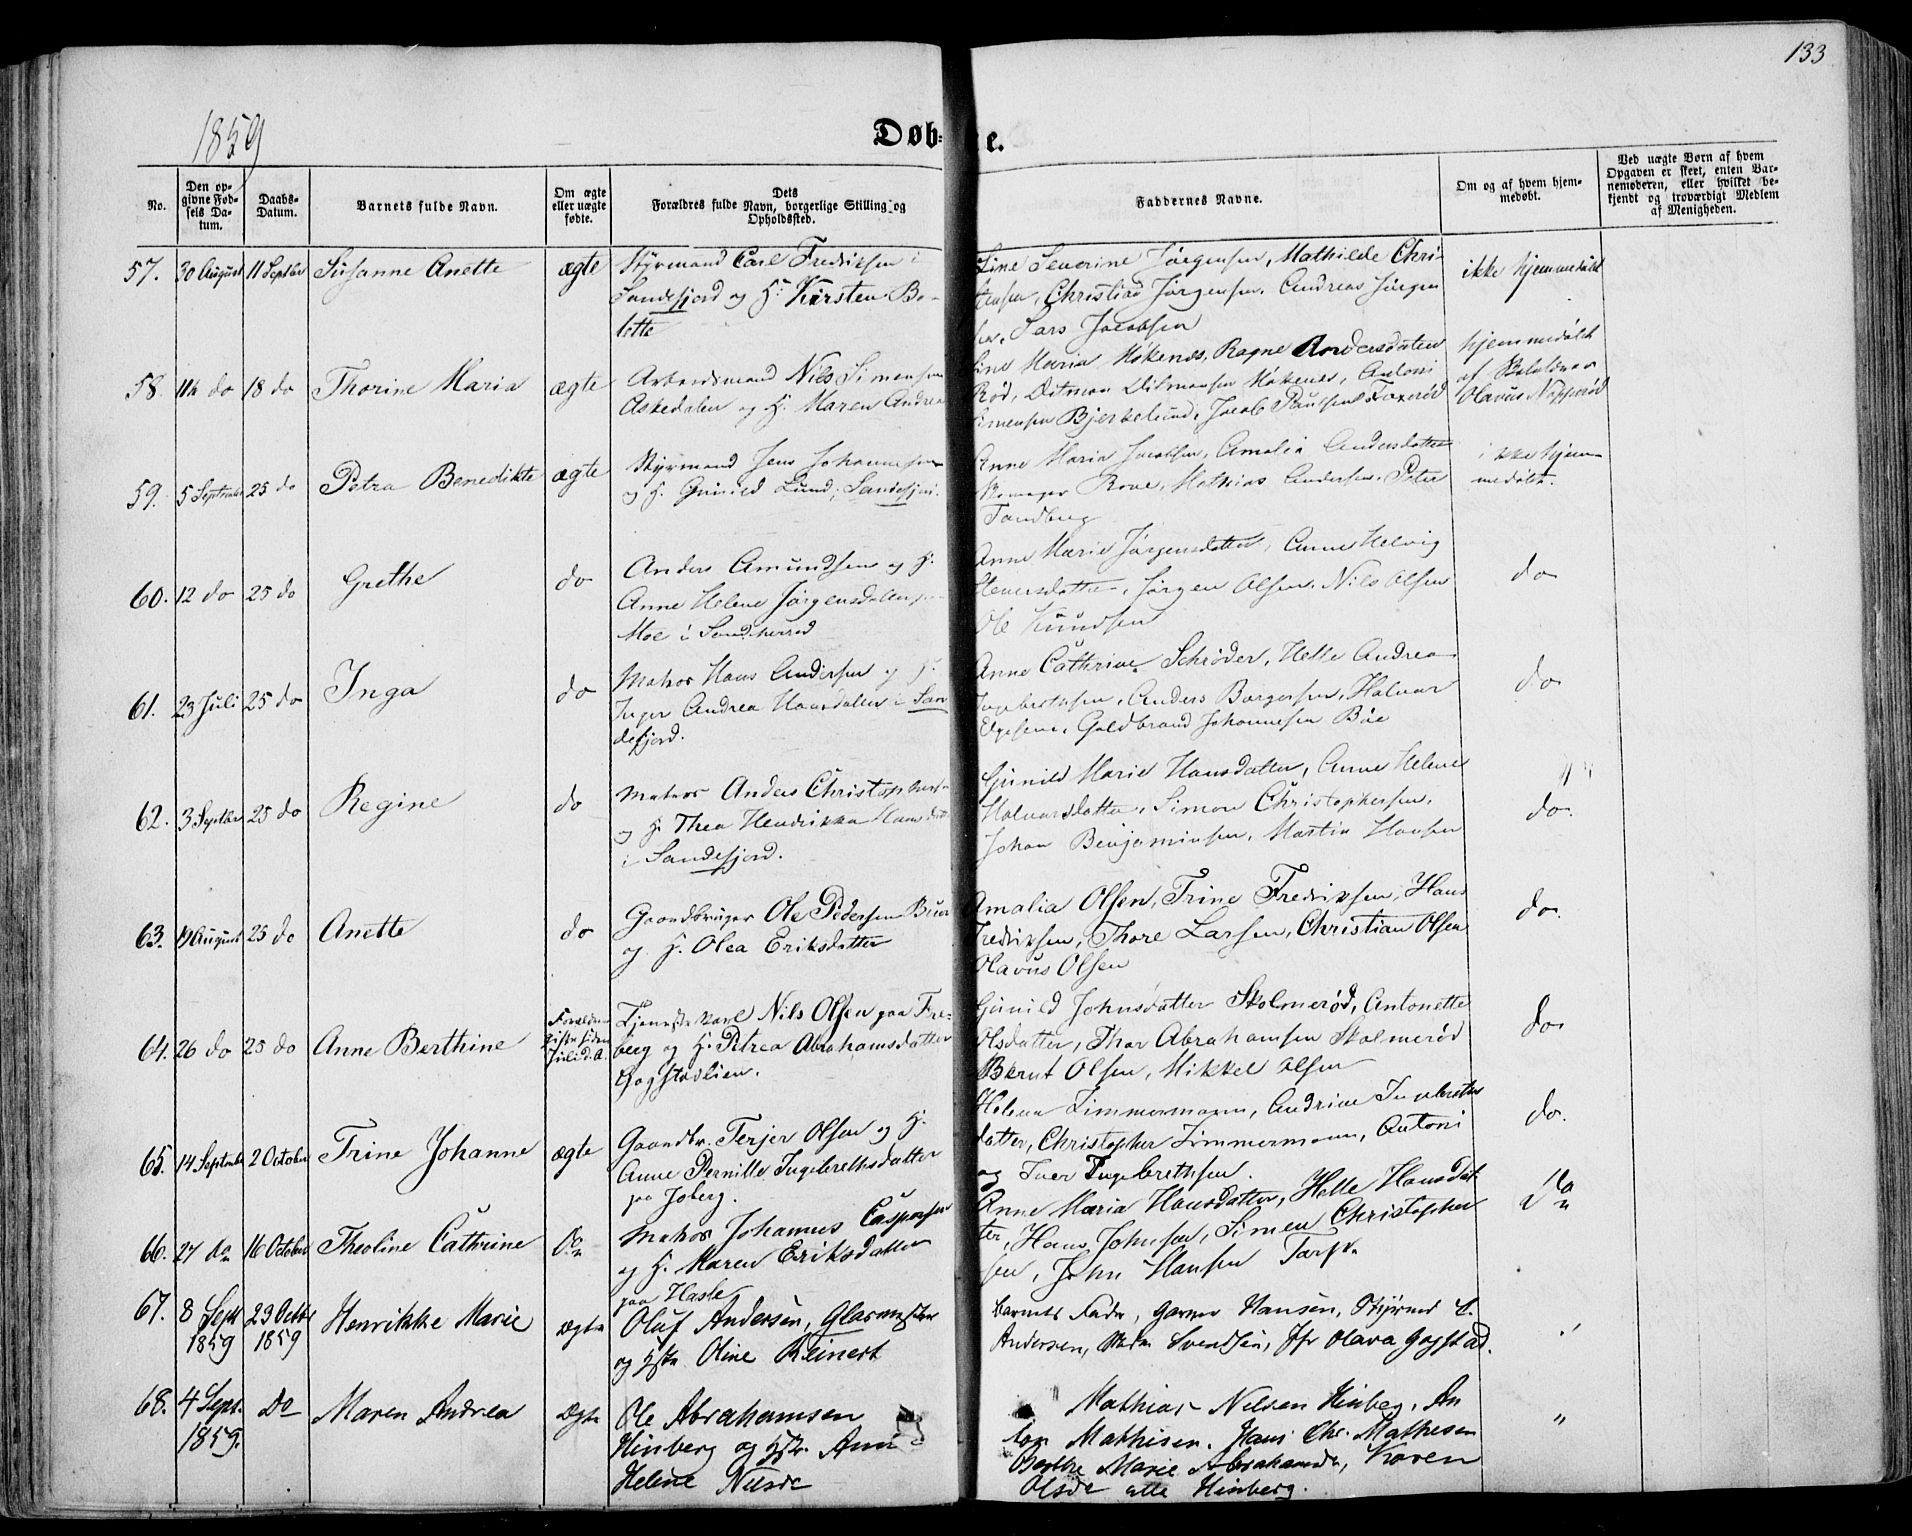 133
1859
Døb- e.
No.
Den opgivne Fødsels Datum.
Daabs-Datum.
Barnets fulde Navn.
Om ægte eller uægte fødte.
Forældres fulde Navn, borgerlige Stilling og Dets Opholdssted.
Faddernes Navne.
Om og af hvem hjemmedøbt.
Ved uægte Børn af hvem Opgaven er skeet, enten Barnemoderen, eller hvilket bekjendt og troværdigt Medlem af Menigheden.
57. 30 August 11 Septbr Susanne Anette ægte Styrmand Carl Fredriksen i
Sandefjord og H. Kirsten Bo-
lette
Line Severine Jørgensen, Mathilde Chri-
stensen, Christian Jørgensen, Andreas Jørgen
sen, Lars Jacobsen
ikke hjemmedøbt
58. 11te do 18 do Thorine Maria ægte Arbeidsmand Nils Simensen
Askedalen og H. Maren Andrea
Line Maria Møkenæs, Ragne Andersdatter
Rød, Ditman Ditmansen Møkenes, Antoni
Simensen Bjerkelund, Jacob Paulsen Foxerød
hjemmedøbt
af Skolelærer
Olavus Nopperød
59. 5 September 25 do Petra Benedikte ægte Styrmand Jens Johannesen
og H. Gunild Lund, Sandefjord.
Anne Maria Jacobsen, Amalia Andersdatter
Skomager Rove, Mathias Andersen, Peter
Tandberg
ikke hjem
medøbt.
60. 12 do 25 do Grethe do Anders Amundsen og H.
Anne Helene Jørgensdatter
Moe i Sandeherred
Anne Marie Jørgensdatter, Anne Helvig
Jørgen Olsen, Nils Olsen
Ole Knudsen
do
61. 23 Juli 25 do Inga do Matros Hans Andersen og H.
Inger Andrea Hansdatter i San
defjord.
Anne Cathrine Schrøder, Helle Andrea
Ingebretsen, Anders Borgersen, Halvar
Guldbrand Johannesen Bøe
do
62. 3 Septbr 25 do Regine do Matros Anders Christophers
og H. Thea Hendrikka Hansdat
i Sandefjord.
Gunild Marie Hansdatter, Anne Helene
Halvarsdatter, Simon Christophersen,
Johan Benjaminsen, Martin Hansen
do.
63. 19 August 25 do Anette do Gaardbruger Ole Pedersen Buer
og H. Olea Eriksdatter
Amalia Olsen, Trine Fredriksen, Hans
Fredriksen, Thore Larsen, Christian Olsen
Olavus Olsen
do.
64. 26 do 25 do Anne Berthine Forældrene
gifte siden
Juli d. A. Tjenestekarl Nils Olsen paa Fre-
berg og H. Petrea Abrahamsdatter
Gogstadlien.
Gunild Johnsdatter Skolmerød, Antonette
Olsdatter, Thor Abrahamsen Skolmerød
Bernt Olsen, Mikkel Olsen
do
65. 14 September 2 October Trine Johanne ægte Gaardbr. Terjer Olsen og H.
Anne Pernille Ingebrethsdatter
paa Joberg.
Helene Timmermann, Andrine Ingebreths
datter, Christopher Timmermann, Antoni
og Iver Ingebrethsen.
do.
66. 27 do 16 October Theoline Cathrine Do Matros Johannes Caspersen
og H. Maren Eriksdatter
paa Hasle
Anne Maria Hansdatter, Helle Hansdat
ter, Hans Johnsen, Simen Christopher
sen, John Hansen
Do
67. 8 Sept
1859 23 Octbr
1859 Henrikke Marie ægte Oluf Andersen, Glarmester
og Hstr Oline Reinert
Barnets Fader, Garver Hansen, Styrmd C.
Andersen, Mdm Svendsen, Jfr Olava Gogstad.
"
68. 4 Sept.
1859. Do Maren Andrea Ægte Ole Abrahamsen
Hinberg og Hstr. Anne
Helene Nilsd
Mathias Nilsen Hinberg, An
ton Mathisen, Hans Chr. Mathesen
Berthe Marie Abrahamsd., Karen
Olsd. alle Hinberg.
"